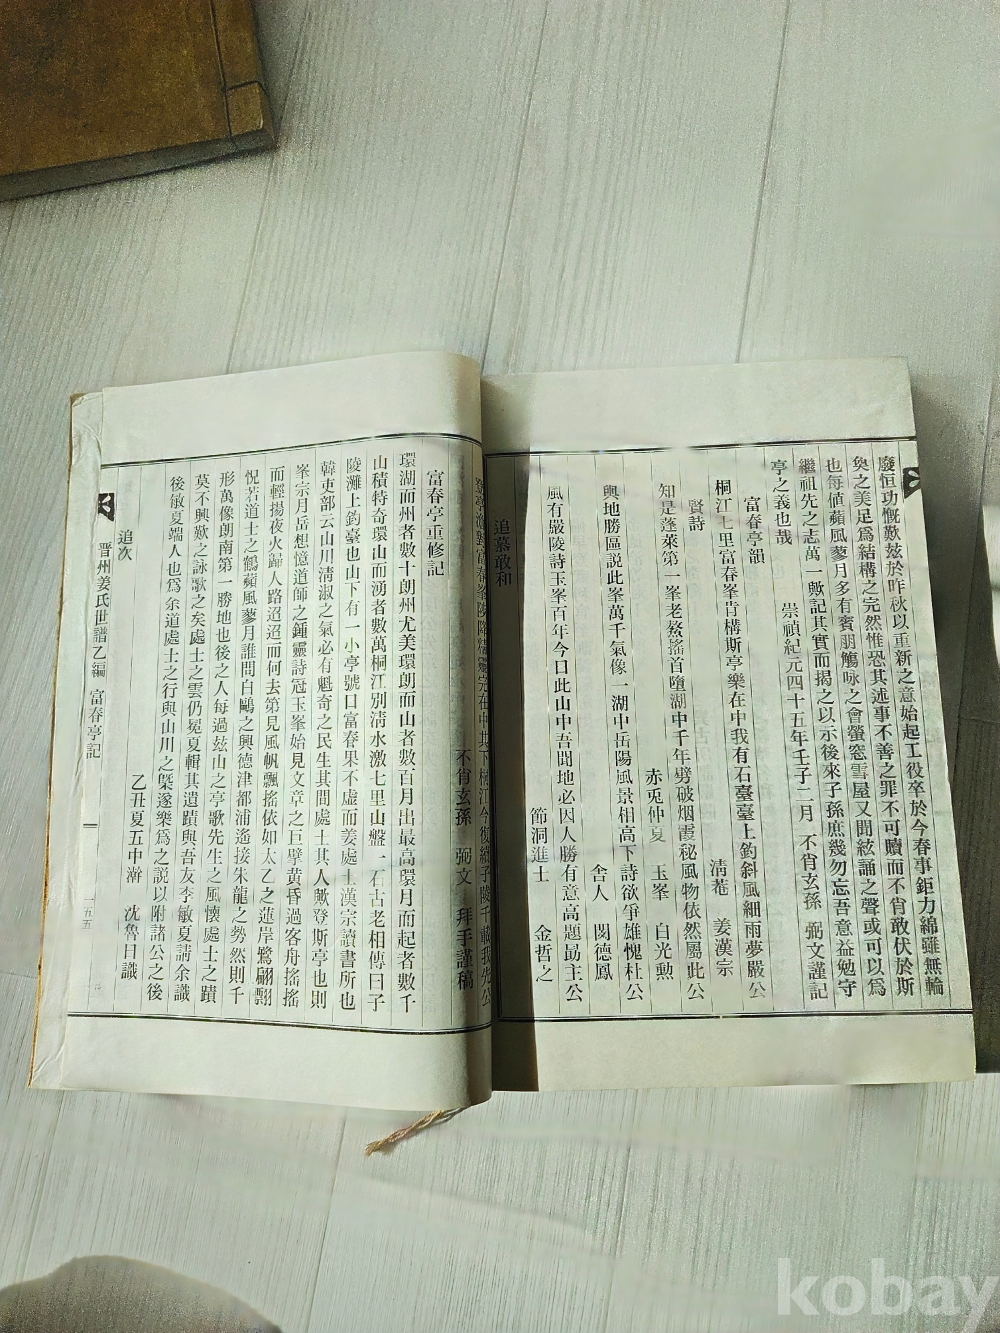 廢恒功慨歎玆於昨秋以重新之意始起工役卒於今春事鉅力綿雖無輪
奐之美足爲結構之完然惟恐其述事不善之罪不可贖而不肖敢伏於斯
也每値蘋風蓼月多有賓朋觴咏之會螢窓雪屋又聞絃誦之聲或可以爲
繼祖先之志萬一歟記其實而揭之以示後來子孫庶幾勿忘吾意益勉守
亭之義也哉
崇禎紀元四十五年壬子二月 不肖玄孫 弼文謹記
富春亭韻
桐江上里富春峯肯構斯亭樂在中我有石臺臺上釣斜風細雨夢嚴公
淸菴 姜漢宗
賢詩
知是蓬萊第一峯老鰲搖首墮湖中千年劈破烟霞秘風物依然屬此公
赤兎仲夏 玉峯 白光勲
輿地勝區說此峯萬千氣像一湖中岳陽風景相高下詩欲爭雄愧杜公
仝人 閔德鳳
風有嚴陵詩玉峯百年今日此山中吾聞地必因人勝有意高題勗主公
節洞進士 金哲之
追慕敢和
富春峯 完在中其下桐江今復續子陵千載我先公
不肖玄孫 弼文 拜手謹稿
富春亭重修記
環湖而州者數十朗州尤美環朗而山者數百月出最高環月而起者數千
山積特奇環山而湧者數萬桐江別淸水激七里山盤一石古老相傳曰子
陵灘上釣臺也山下有一小亭號曰富春果不虛而姜處士漢宗讀書所也
韓吏部云山川淸淑之氣必有魁奇之民生其間處士其人歟登斯亭也則
峯宗月岳想憶道師之鍾靈詩冠玉峯始見文章之巨擘黃昏過客舟搖搖
而輕揚夜火歸人路迢迢而何去第見風帆飄搖依如太乙之蓮岸鷺翩飄
怳若道士之鶴蘋風蓼月誰問白鷗之興德津都浦遙接朱龍之勢然則千
形萬像朗南第一勝地也後之人每過玆山之亭歌先生之風懷處士之蹟
莫不興歎之詠歌之矣處士之雲仍冕夏輯其遺蹟與吾友李敏夏請余識
後敏夏端人也爲余道處士之行與山川之槩遂樂爲之說以附諸公之後
乙丑夏五中澣 沈魯日識
追次
晋州姜氏世譜乙編 富春亭記
一五五
kobay